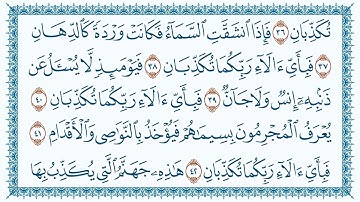 تُكَذِّبَانِ ٣٦ فَإِذَا ٱنشَقَّتِ ٱلسَّمَآءُ فَكَانَتْ وَرْدَةً كَٱلدِّهَانِ
٣٧ فَبِأَىِّ ءَالَآءِ رَبِّكُمَا تُكَذِّبَانِ ٣٨ فَيَوْمَئِذٍ لَّا يُسْـَٔلُ عَن
ذَنۢبِهِۦٓ إِنسٌ وَلَا جَآنٌّ ٣٩ فَبِأَىِّ ءَالَآءِ رَبِّكُمَا تُكَذِّبَانِ ٤٠
يُعْرَفُ ٱلْمُجْرِمُونَ بِسِيمَٰهُمْ فَيُؤْخَذُ بِٱلنَّوَٰصِى وَٱلْأَقْدَامِ ٤١
فَبِأَىِّ ءَالَآءِ رَبِّكُمَا تُكَذِّبَانِ ٤٢ هَٰذِهِۦ جَهَنَّمُ ٱلَّتِى يُكَذِّبُ بِهَا